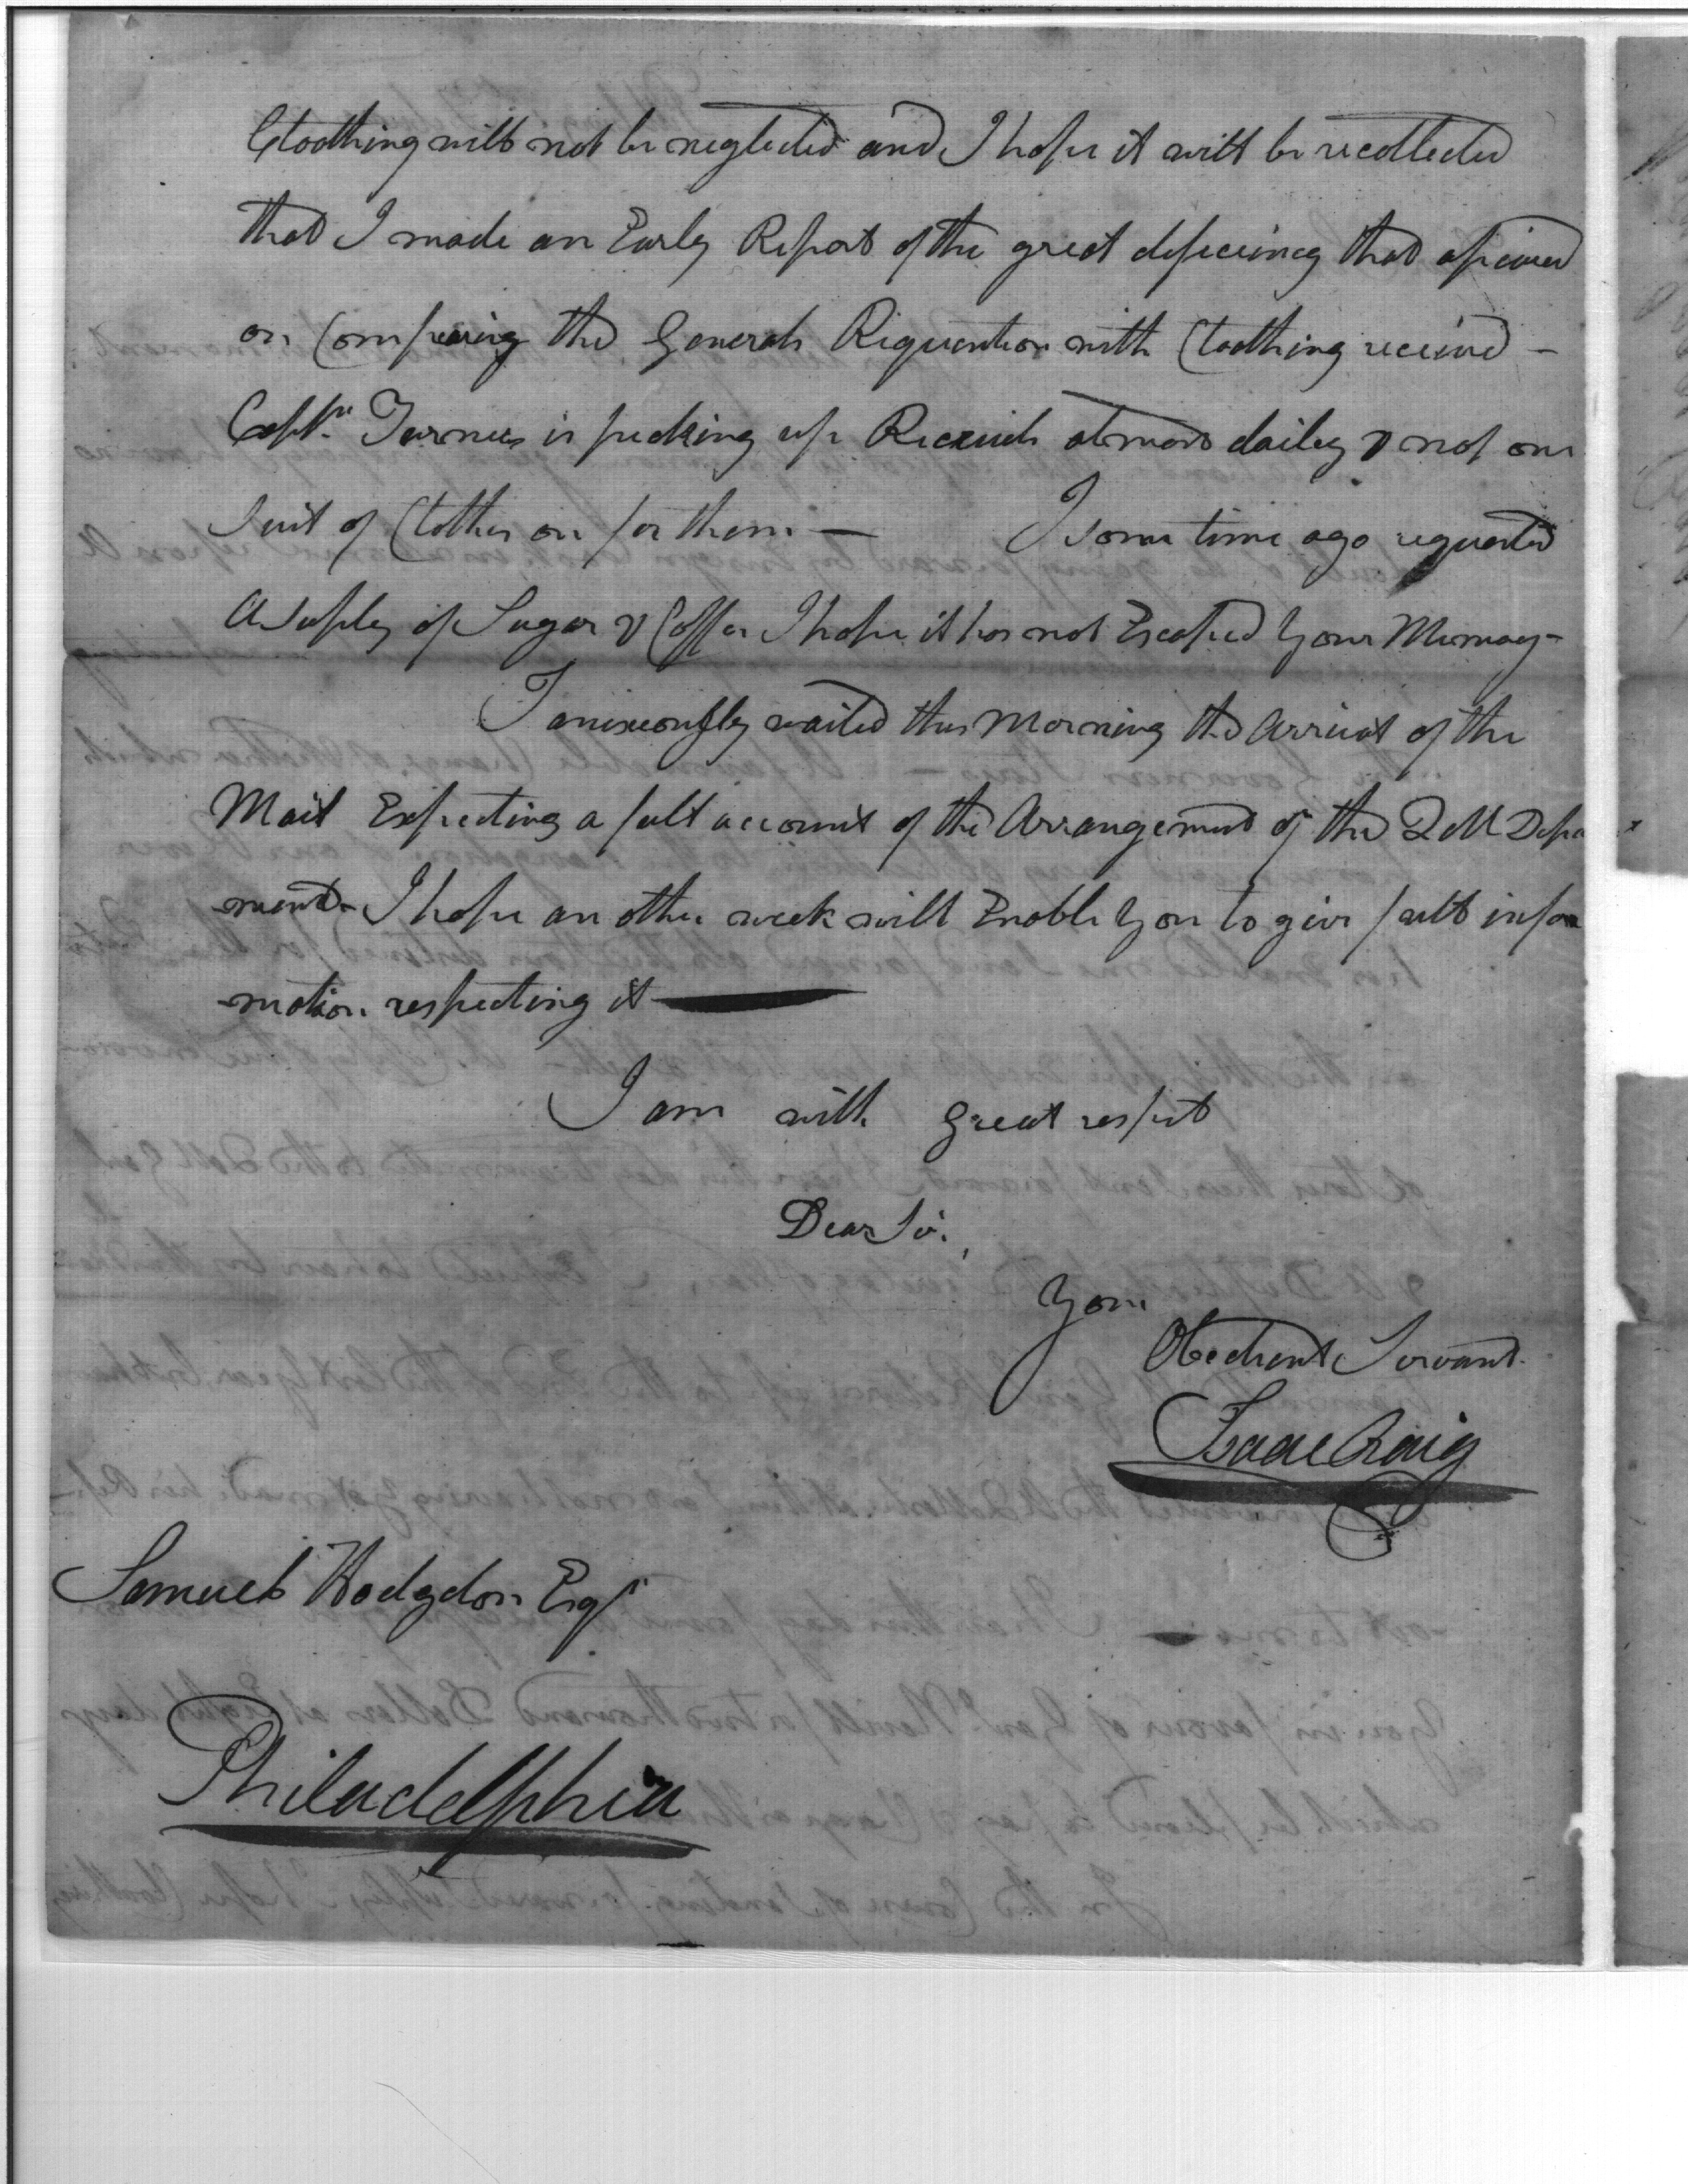 Cloathing will not be neglected and I hope it will be recollected
that I made an Early Report of the great defeciency that apeared
on Compearing the Generals Requesition with Cloathing received –
Capt.n Turner is picking up Recruits almost dailey & not one
Suit of Clothes on for them — I some time ago requested
A Suply of Sugar & Coffee I hope it has not Escaped Your Memory –
I anxeously waited this Morning the Arrival of the
Mail Expecting a full account of the Arrangement of the QM Depart
-ment – I hope an other week will Enoble You to give full infor
-mation respecting it —
I am with Great respect
Dear Sir,
Your
Obedient Servant
Isaac Craig
Samuel Hodgdon Esqr
Philadelphia